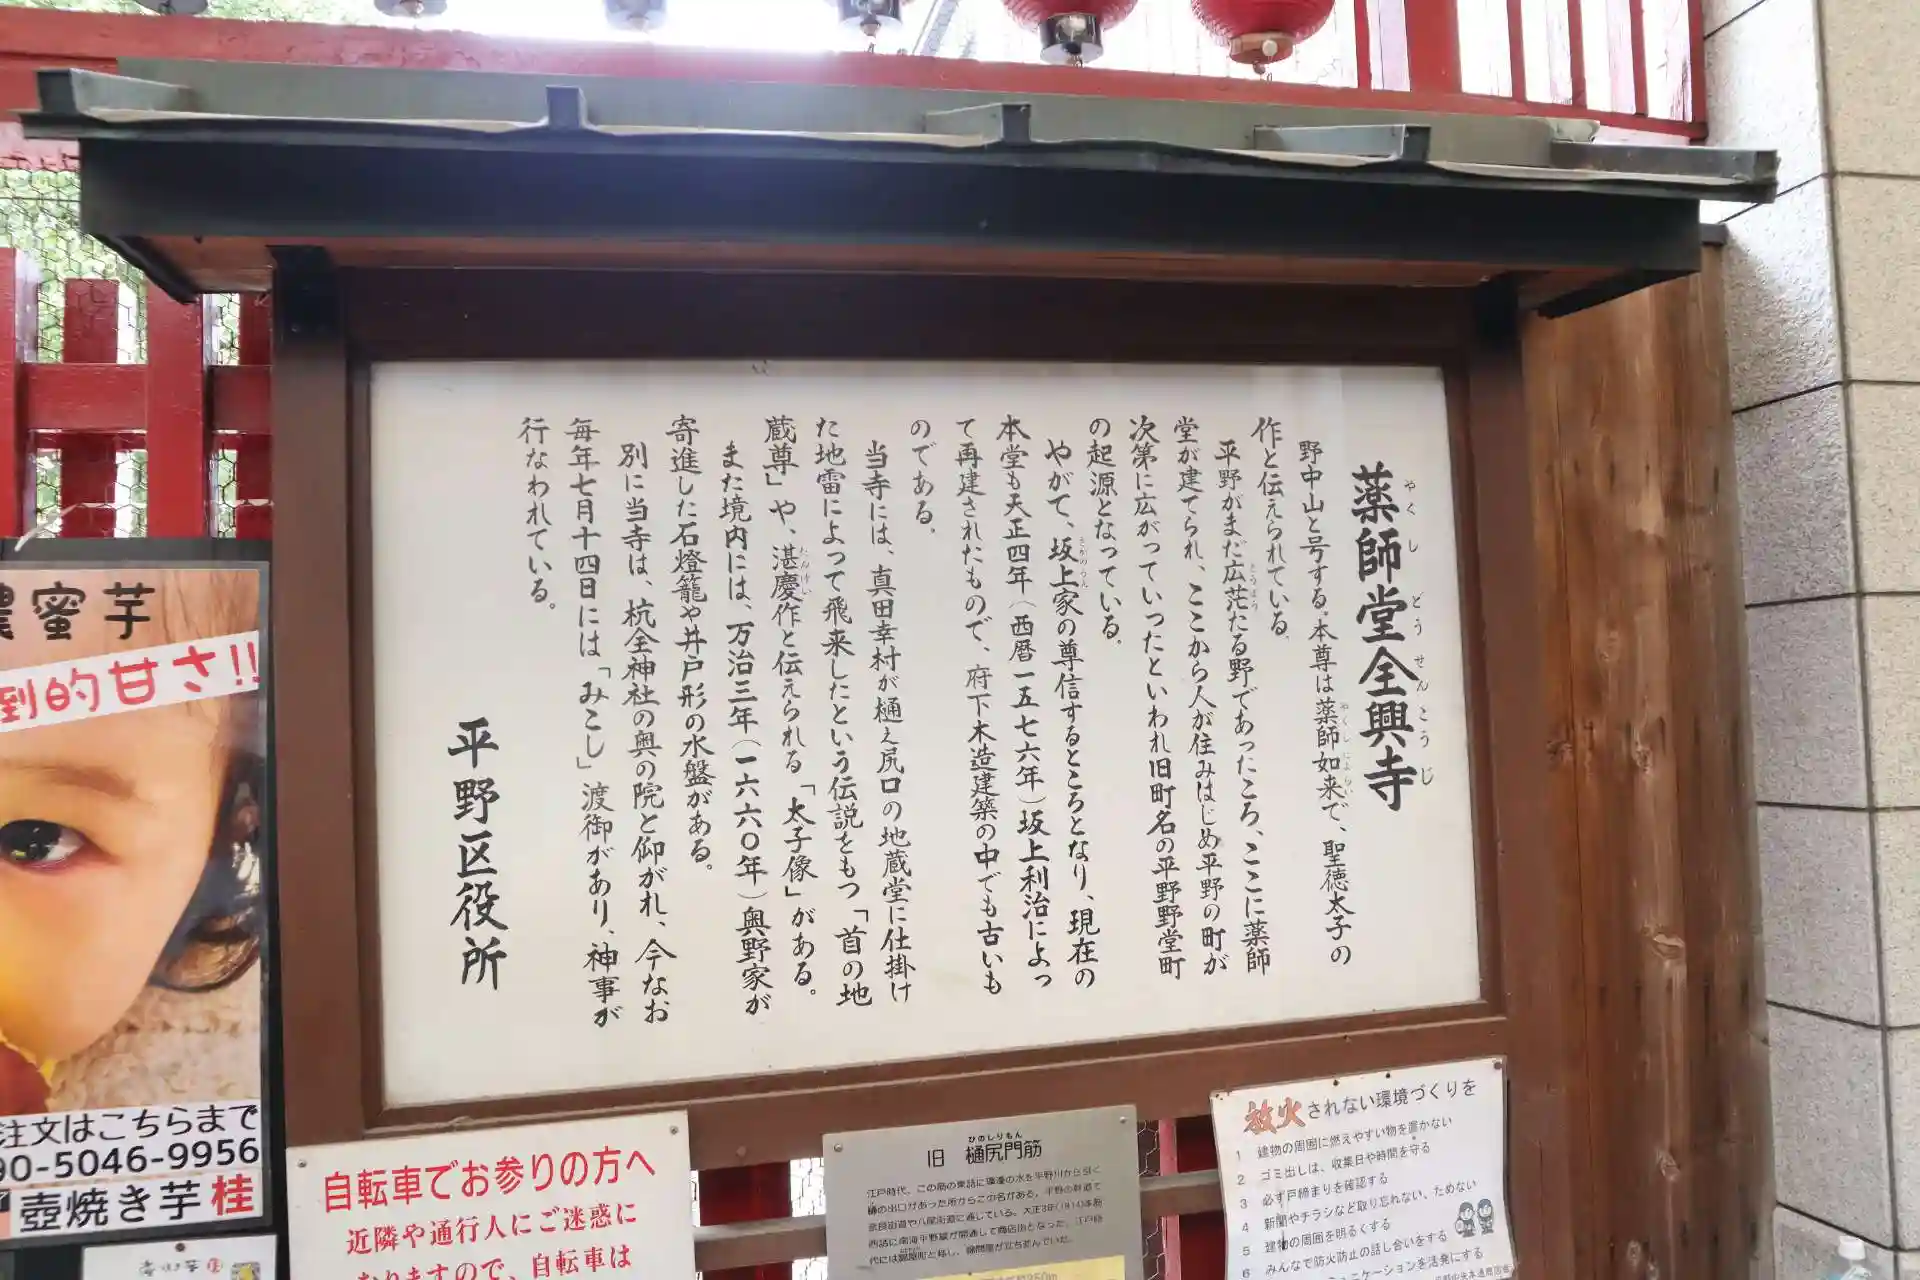 薬師堂全興寺
やくし どう せんこうじ
野中山と号する。本尊は薬師如来で、聖徳太子の
作と伝えられている。
平野がまだ広茫たる野であったころ、ここに薬師
堂が建てられ、ここから人が住みはじめ平野の町が
次第に広がっていったといわれ旧町名の平野野堂町
の起源となっている。
やがて、坂上家の尊信するところとなり、現在の
本堂も天正四年(西暦一五七六年)坂上利治によっ
て再建されたもので、府下木造建築の中でも古いも
のである。
当寺には、真田幸村が樋え尻口の地蔵堂に仕掛け
た地雷によって飛来したという伝説をもつ「首の地
蔵尊」や、湛慶作と伝えられる「太子像」がある。
また境内には、万治三年(一六六〇年)奥野家が
寄進した石燈籠や井戸形の水盤がある。
別に当寺は、杭全神社の奥の院と仰がれ、今なお
毎年七月十四日には「みこし」渡御があり、神事が
行なわれている。
平野区役所
濃蜜芋
倒的甘さ!!
注文はこちらまで
90-5046-9956
壺焼き芋 桂
自転車でお参りの方へ
近隣や通行人にご迷惑に
なりますので、自転車は
ひのしりもん
旧 樋尻門筋
放火されない環境づくりを
1 建物の周囲に燃えやすい物を置かない
2 ゴミ出しは、収集日や時間を守る
3 必ず戸締まりを確認する
4 新聞やチラシなど取り忘れない、ためない
5 建物の周囲を明るくする
6 みんなで防火防止の話し合いをする
ニケーションを活発にする